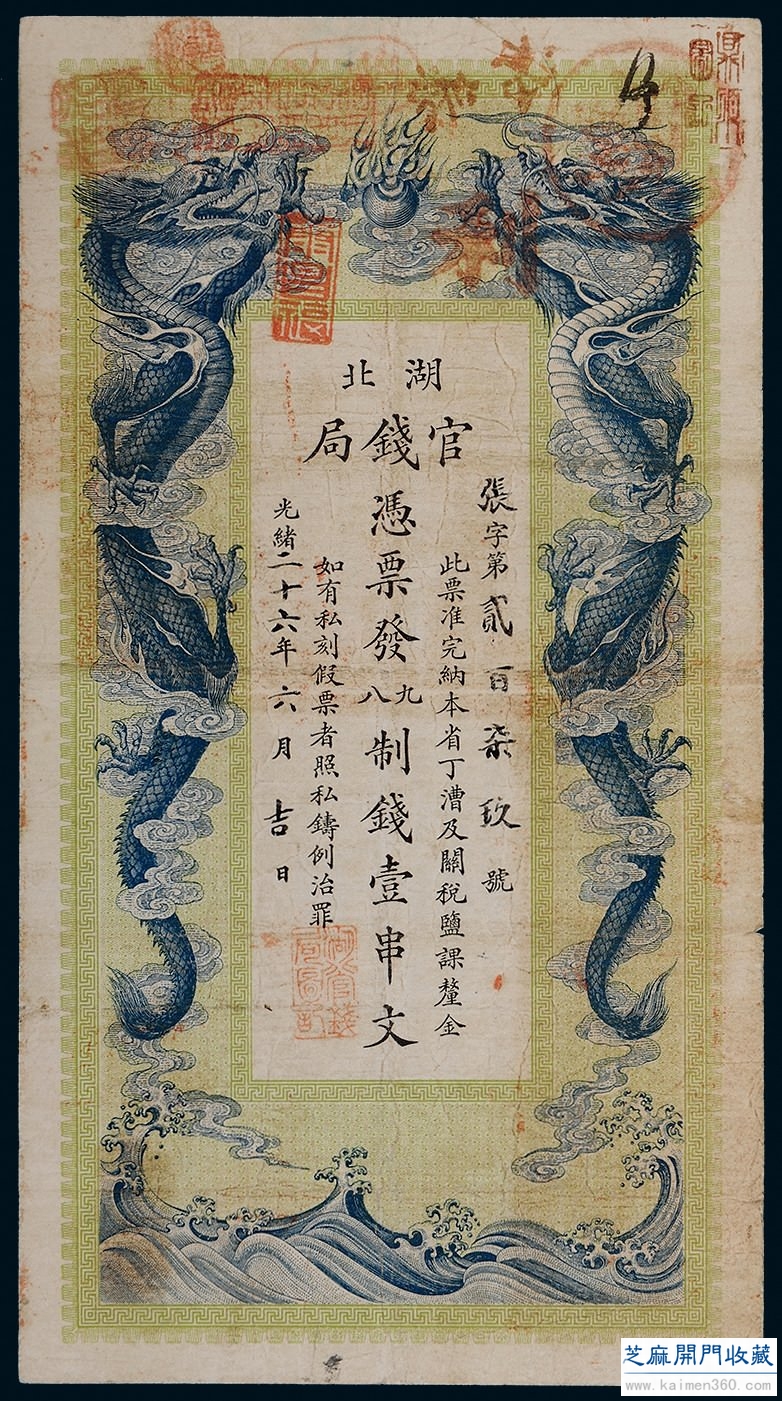 湖北
官錢局
張字第貳百柒玖號
此票准完納本省丁漕及關稅鹽課釐金
憑票發九八制錢壹串文
如有私刻假票者照私鑄例治罪
光緒二十六年六月吉日
湖北官錢局圖記
芝麻開門收藏
www.kaimen360.com